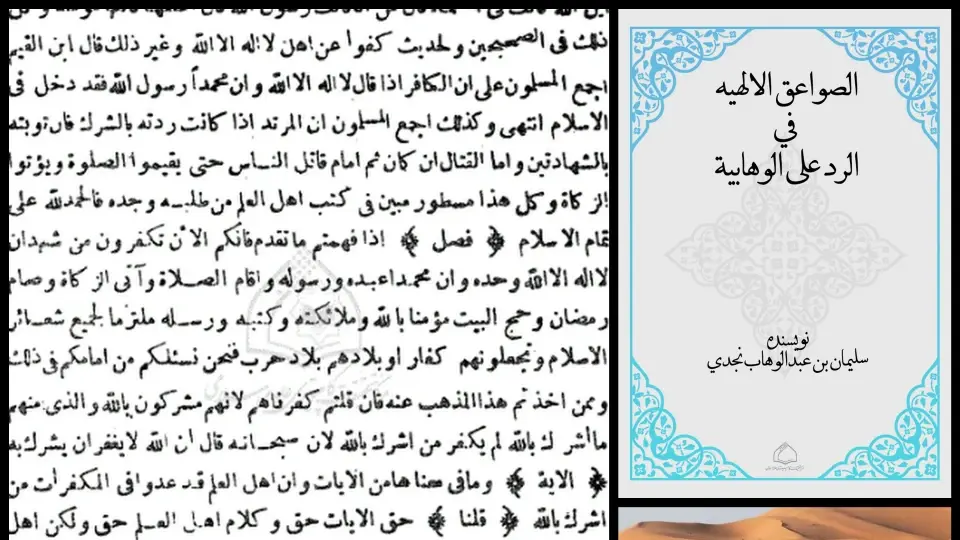 ذلك فى الصحيحين ولحديث كفوا عن اهل لااله الاالله وغير ذلك قال ابن القيم
اجع المسلمون على ان الكافر اذا قال لا اله الاالله وان محمداً رسول الله فقد دخل فى
الاسلام انتهى وكذلك اجع المسلمون ان المرتد اذا كانت ردته بالشرك فان توبته
بالشهادتين واما القتال ان كان ثم امام قاتل النـاس حتى يقيموا الصلوة ويؤتوا
الزكاة وكل هذا مسطور مبين فى كتب اهل العلم من طلبـه وجده فالحمدلله على
تمام الاسلام ﴿ فصل ﴾ اذا فهمتم ما تقدم فانكم الان تكفرون من شهدان
لااله الاالله وحده وان محمداعبده ورسوله واقام الصـلاة وآتى الزكاة وصام
رمضان وحج البيت مؤمنا بالله وملائكته وكتبـه ورسـله ملتزما لجميع شعـائر
الاسلام وتجعلونهم كفار اوبلادهم بلاد حرب فنحن نسئلكم من امامكم فى ذلك
وممن اخذتم هذا المذهب عنه فان قلتم كفرناهم لانهم مشركون بالله والذى منهم
ما أشرك بالله لم يكفر من اشرك بالله لان سبحـانه قال ان الله لايغفران يشرك به
﴿ الاية ﴾ ومافى معناهامن الايات وان اهل العلم قد عدوافى المكفرات من
اشرك بالله ﴿ قلنا ﴾ حق الايات حق وكلام اهل العـلم حق ولكن اهل
الصواعق الالهيه
في
الرد على الوهابية
نویسنده
سلیمان بن عبدالوهاب نجدي